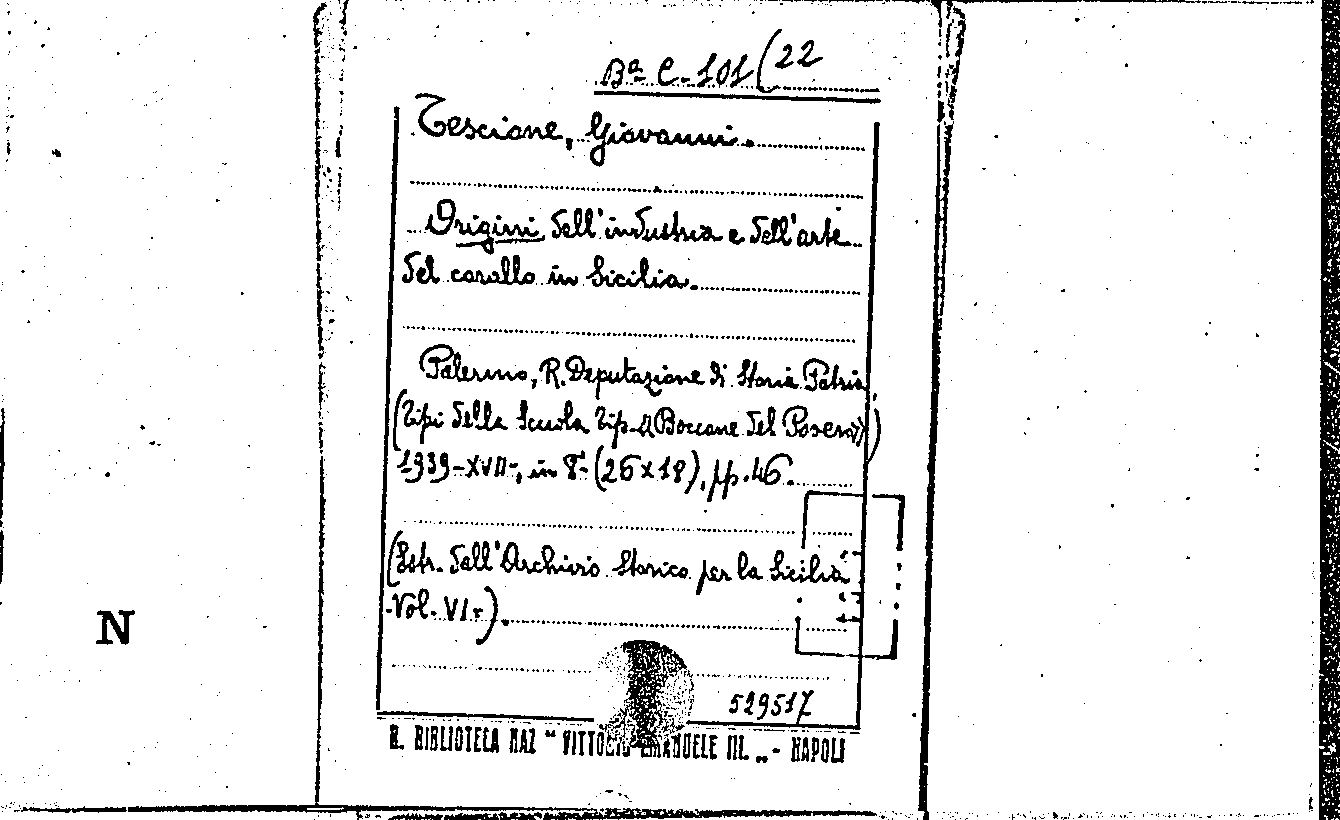 Bª C-101(22
Tescione, Giovanni.
Origini dell'industria e dell'arte
del corallo in Sicilia.
Palermo, R. Deputazione di Storia Patria
(Tipi della Scuola Tip. "Boccone del Povero")
1939-XVII-, in 8º (26x18), pp. 46.
(Estr. dall'Archivio Storico per la Sicilia
-Vol. VI-).
529517
R. BIBLIOTECA NAZ "VITTORIO EMANUELE III.„ - NAPOLI
N